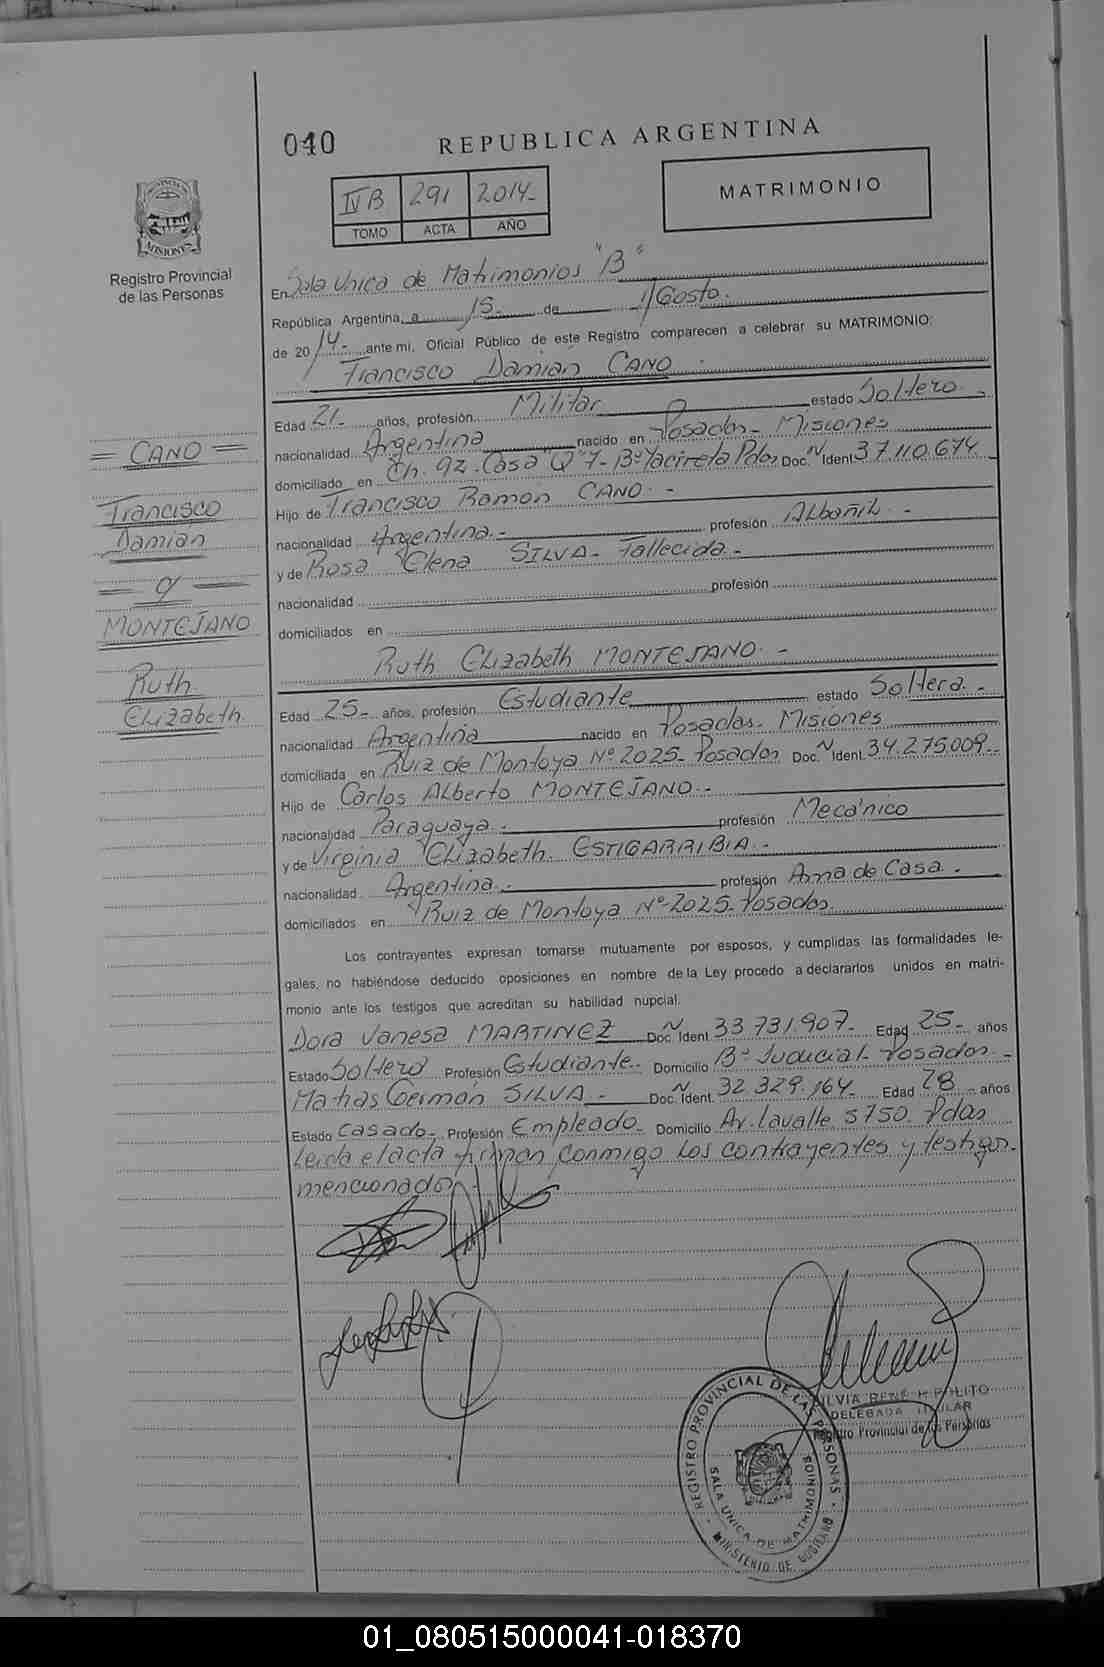 040
REPUBLICA ARGENTINA
IV B 291 2014.-
TOMO ACTA AÑO
MATRIMONIO
PROVINCIA
MISIONES
Registro Provincial
de las Personas
En Sala Unica de Matrimonios "B"
República Argentina, a 15 de Agosto.
de 2014.- ante mi, Oficial Público de este Registro comparecen a celebrar su MATRIMONIO:
Francisco Damián CANO.
Edad 21.- años, profesión Militar estado Soltero.-
nacionalidad Argentina nacido en Posadas- Misiones
domiciliado en Ch. 92. Casa "Q" 7- Bº Yacireta Pdas Doc. Nº Ident. 37.110.674.-
Hijo de Francisco Ramón CANO.-
nacionalidad Argentina.- profesión Albañil.-
y de Rosa Elena SILVA- Fallecida.-
nacionalidad profesión
domiciliados en
Ruth Elizabeth MONTEJANO.-
Edad 25.- años, profesión Estudiante estado Soltera.-
nacionalidad Argentina nacido en Posadas- Misiones
domiciliada en Ruiz de Montoya Nº 2025- Posadas Doc. Nº Ident. 34.275.009.-
Hijo de Carlos Alberto MONTEJANO.-
nacionalidad Paraguaya.- profesión Mecánico
y de Virginia Elizabeth ESTIGARRIBIA.-
nacionalidad Argentina.- profesión Ama de Casa.-
domiciliados en Ruiz de Montoya Nº 2025- Posadas.
Los contrayentes expresan tomarse mutuamente por esposos, y cumplidas las formalidades le-
gales, no habiéndose deducido oposiciones en nombre de la Ley procedo a declararlos unidos en matri-
monio ante los testigos que acreditan su habilidad nupcial:
Dora Vanesa MARTINEZ Doc. Nº Ident. 33.731.907- Edad 25- años
Estado Soltero Profesión Estudiante.- Domicilio Bº Judicial- Posadas.-
Matías Germán SILVA.- Doc. Nº Ident. 32.329.164- Edad 28 años
Estado Casado- Profesión Empleado- Domicilio Av. Lavalle 5750. Pdas
Leída el acta firman conmigo los contrayentes y testigos
mencionados.-
= CANO =
Francisco
Damián
= y =
MONTEJANO
Ruth
Elizabeth
SILVIA RENÉ HIPÓLITO
DELEGADA TITULAR
Registro Provincial de las Personas
REGISTRO PROVINCIAL DE LAS PERSONAS
SALA UNICA DE MATRIMONIOS
MINISTERIO DE GOBIERNO
01_080515000041-018370